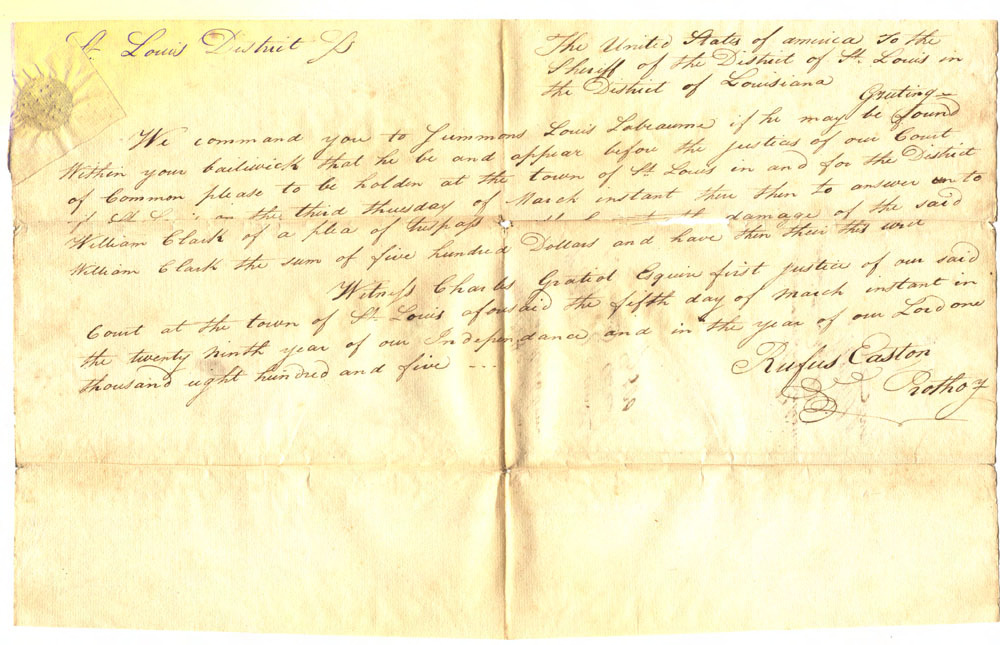 St. Louis District Ss
The United States of america To the
Sheriff of the District of St. Louis in
the District of Louisiana
Greting
We command you to Summons Louis Labeaume if he may be found
Within your bailiwick that he be and appear before the justices of our Court
of Common please to be holden at the town of St. Louis in and for the District
on the third thuesday of March instant their then to answer unto
William Clark of a plea of trespass the damage of the said
William Clark the sum of five hundred Dollars and have then their this writ
Witness Charles Gratiot Esquire first justice of our said
Court at the town of St. Louis aforesaid the fifth day of March instant in
the twenty ninth year of our Independance and in the year of our Lord one
thousand eight hundred and five
Rufus Easton
Prothoy